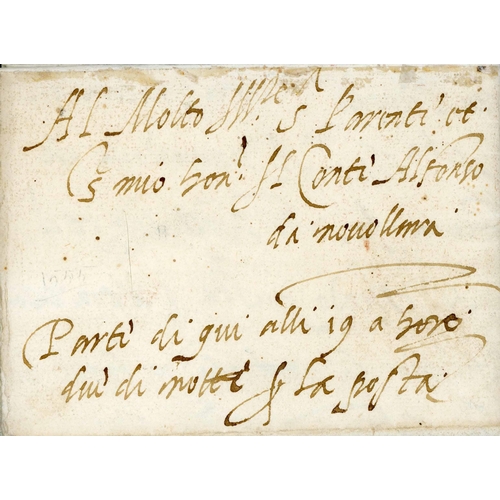 Al Molto Ill.re S. Parente et
S. mio hon. Il Conte Alfonso
da novellara
1595
Parte di qui alli 19 a hore
due di notte p la posta